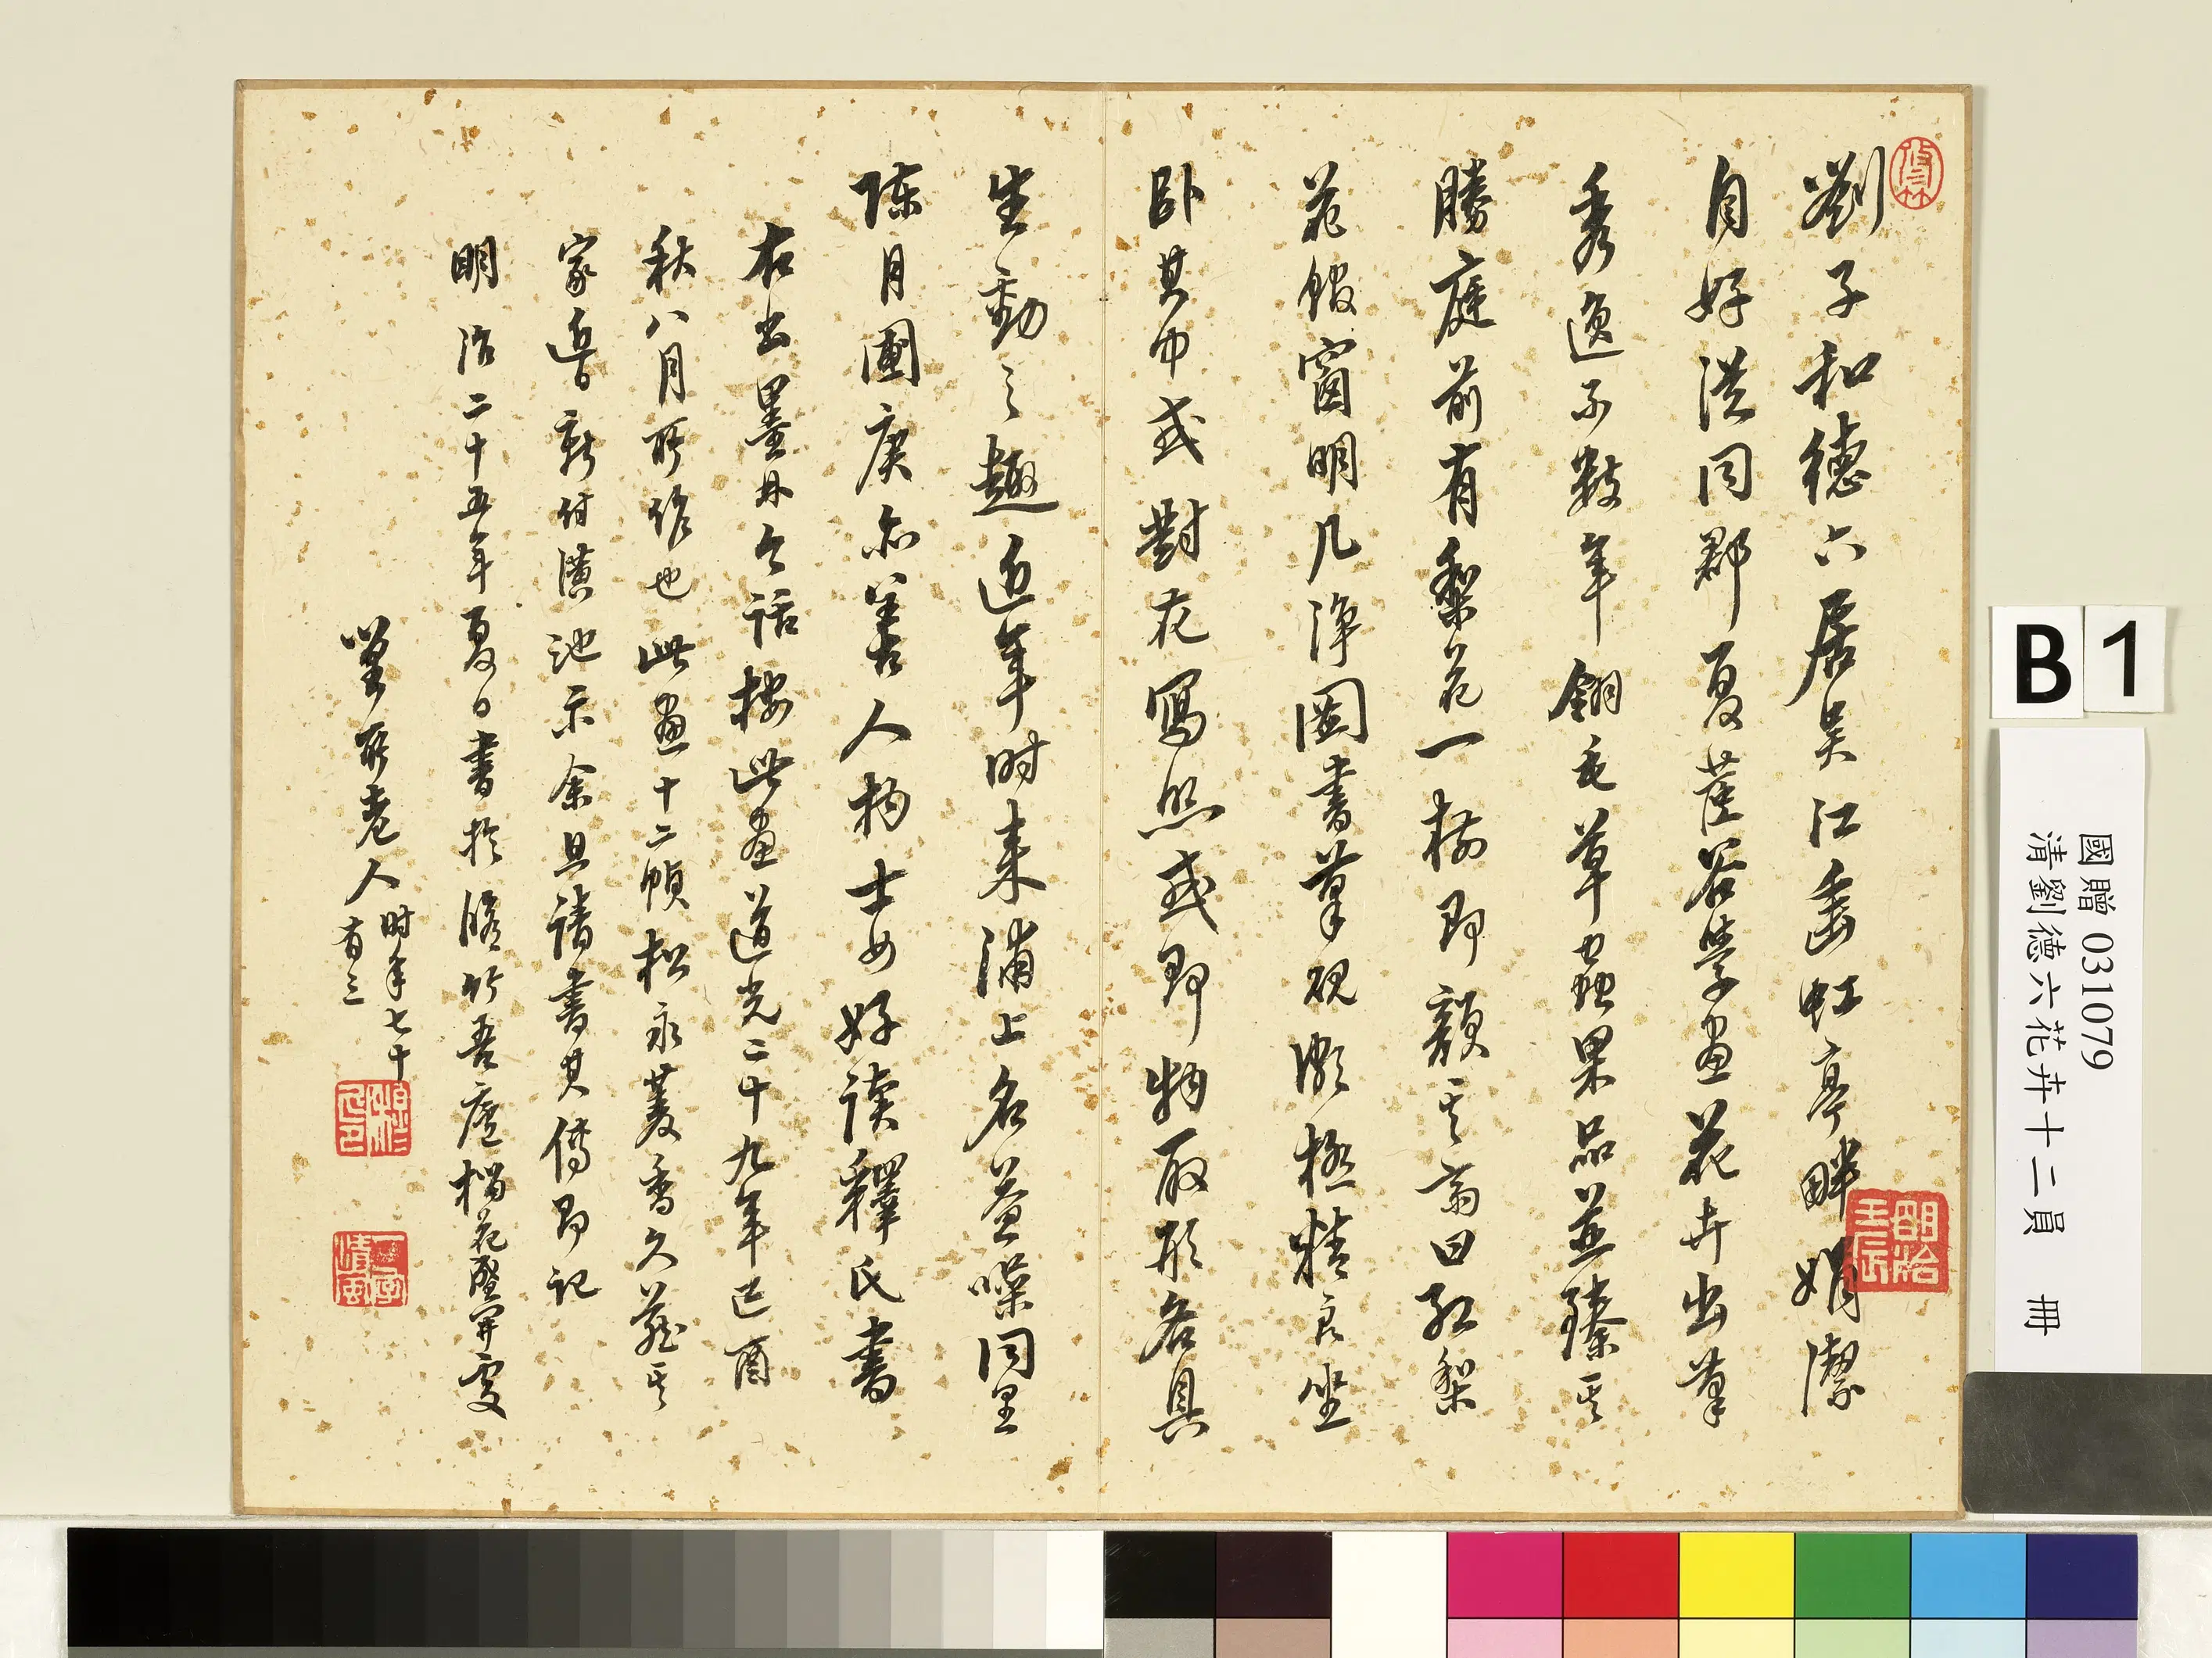 劉子和德六居吳江垂虹亭畔娟潔
自好從同郡夏茝谷學画花卉出筆
秀逸不數年翎毛草蟲果品並臻其
勝庭前有梨花一樹即顏其齋曰紅梨
花館窗明几淨圖書筆硯潔極精良坐
臥其中或對花寫照或即物取形各具
生動之趣近年時来浦上名益噪同里
陳月圃庚亦善人物士女好讀釋氏書
右出墨林今話按此画道光二十九年己酉
秋八月所作也此画十二幀松永菱香久藏其
家近日新付潢池示余且請書其傳即記
明治二十五年夏日書於修竹吾廬榴花盛開處
所老人
時年七十
有三
修竹
明治
壬辰
清風
B 1
國贈 031079
清劉德六花卉十二員 冊